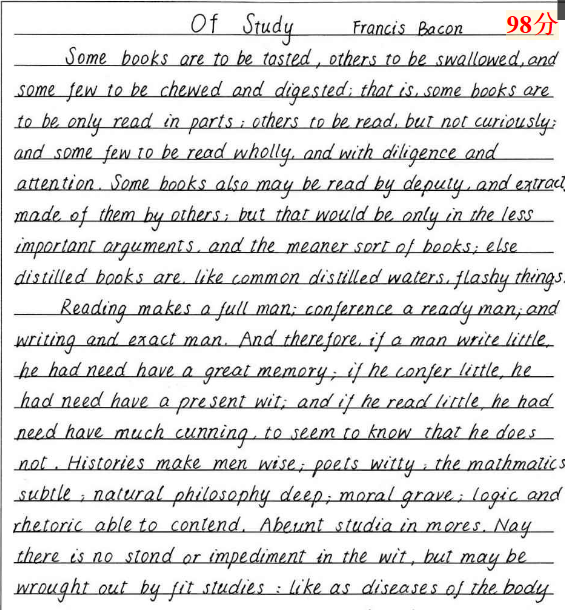 Of Study Francis Bacon 98分
Some books are to be tasted, others to be swallowed, and
some few to be chewed and digested; that is, some books are
to be only read in parts; others to be read, but not curiously;
and some few to be read wholly, and with diligence and
attention. Some books also may be read by deputy, and extract
made of them by others; but that would be only in the less
important arguments, and the meaner sort of books; else
distilled books are, like common distilled waters, flashy things.
Reading makes a full man; conference a ready man; and
writing and exact man. And therefore, if a man write little,
he had need have a great memory; if he confer little, he
had need have a present wit; and if he read little, he had
need have much cunning, to seem to know that he does
not. Histories make men wise; poets witty; the mathmatics
subtle; natural philosophy deep; moral grave; logic and
rhetoric able to contend. Abeunt studia in mores. Nay
there is no stond or impediment in the wit, but may be
wrought out by fit studies: like as diseases of the body